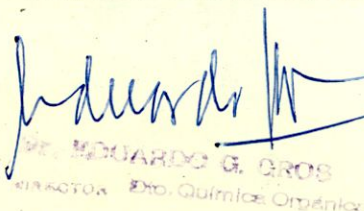 Eduardo
Dr. EDUARDO G. GROS
DIRECTOR Dto. Química Orgánica